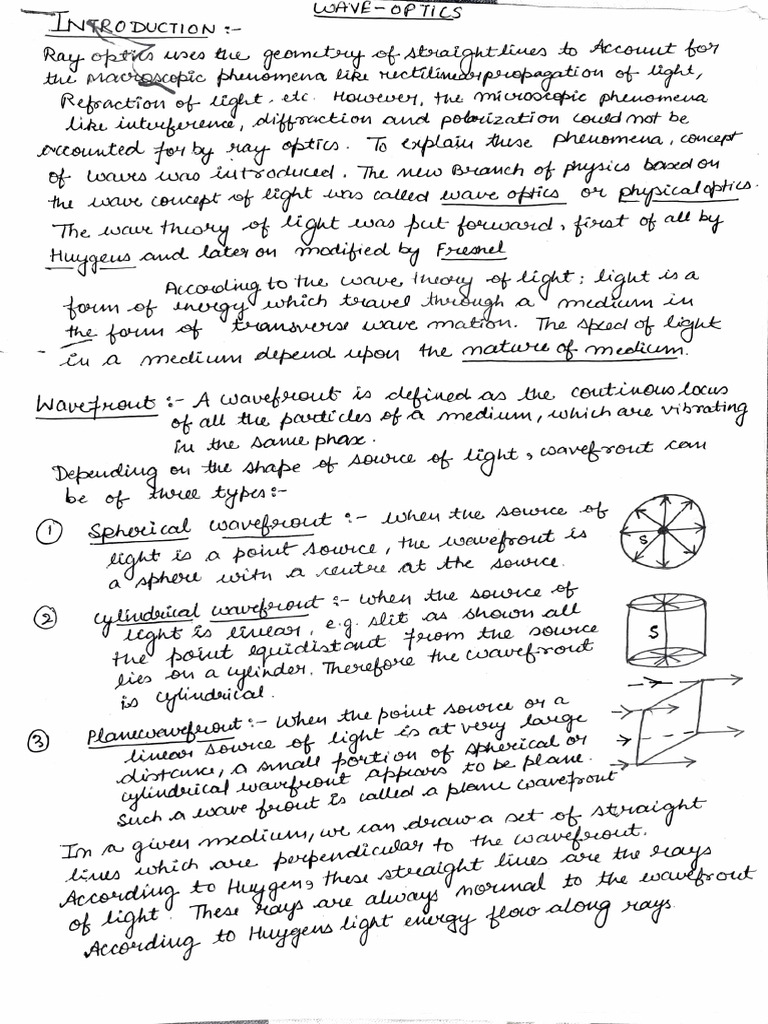 WAVE-OPTICS
INTRODUCTION:-
Ray optics uses the geometry of straight lines to Account for
the macroscopic phenomena like rectilinear propagation of light,
Refraction of light. etc. However, the microscopic phenomena
like interference, diffraction and polarization could not be
accounted for by ray optics. To explain these phenomena, concept
of waves was introduced. The new Branch of physics based on
the wave concept of light was called wave optics or physical optics.
The wave theory of light was put forward, first of all by
Huygens and later on modified by Fresnel
According to the wave theory of light; light is a
form of energy which travel through a medium in
the form of transverse wave motion. The speed of light
in a medium depend upon the nature of medium.
Wavefront :- A wavefront is defined as the continous locus
of all the particles of a medium, which are vibrating
in the same phase.
Depending on the shape of source of light, wavefront can
be of three types:-
① Spherical wavefront :- when the source of
light is a point source, the wavefront is
a sphere with a centre at the source.
S
② Cylindrical wavefront :- when the source of
light is linear, e.g. slit as shown all
the point equidistant from the source
lies on a cylinder. Therefore the wavefront
is cylindrical.
S
③ Planewavefront :- when the point source or a
linear source of light is at very large
distance, a small portion of spherical or
cylindrical wavefront appears to be plane.
Such a wave front is called a plane wavefront
In a given medium, we can draw a set of straight
lines which are perpendicular to the wavefront.
According to Huygens, these straight lines are the rays
of light. These rays are always normal to the wavefront
According to Huygens light energy flow along rays.